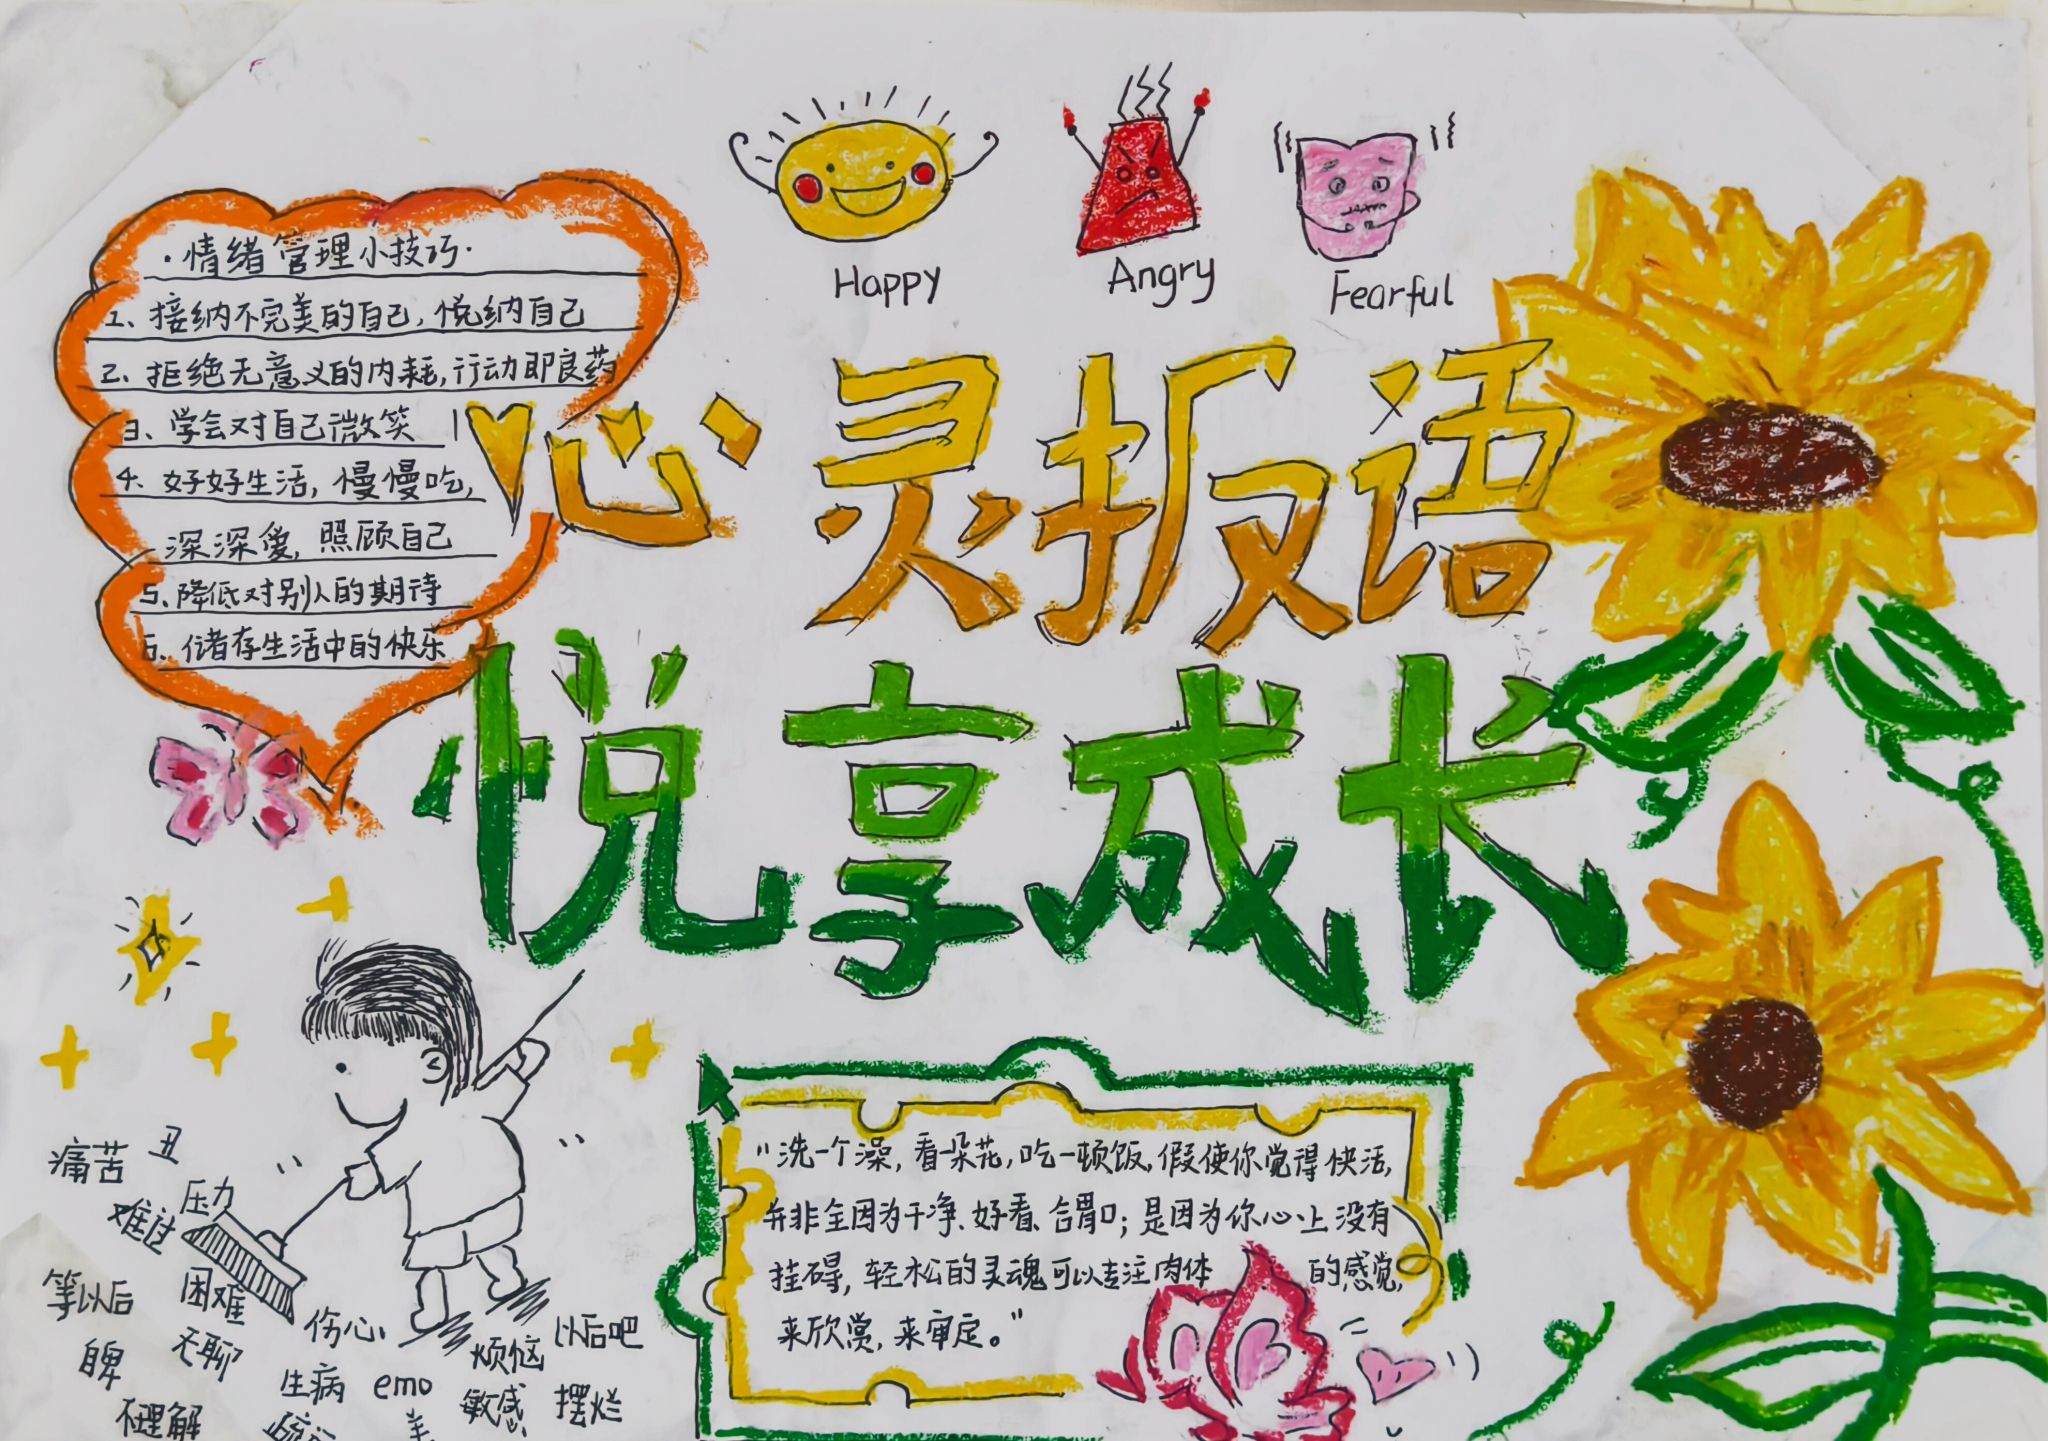 Happy
Angry
Fearful
·情绪管理小技巧·
1、接纳不完美的自己，悦纳自己
2、拒绝无意义的内耗，行动即良药
3、学会对自己微笑
4、好好生活，慢慢吃，
深深爱，照顾自己
5、降低对别人的期待
6、储存生活中的快乐
心灵报语
悦享成长
痛苦
丑
压力
难过
等以后
困难
伤心
自卑
无聊
烦恼
以后吧
生病
emo
敏感
摆烂
不理解
"洗一个澡，看一朵花，吃一顿饭，假使你觉得快活，
并非全因为干净、好看、合胃口；是因为你心上没有
挂碍，轻松的灵魂可以专注肉体的感觉，
来欣赏，来审定。"